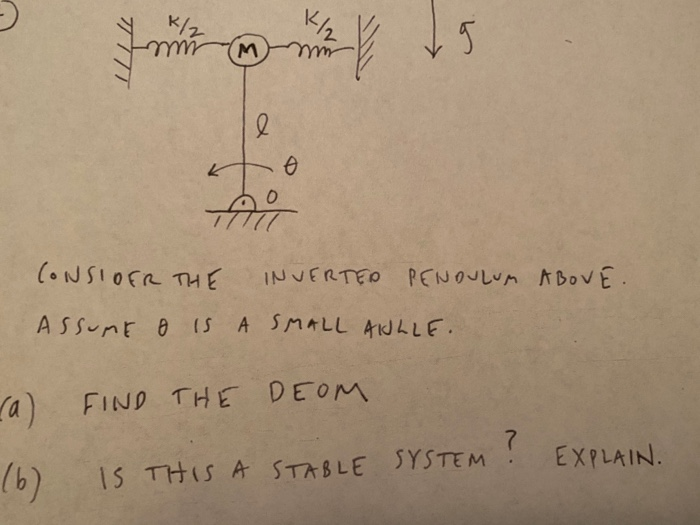 K/2 K/2
M
g
l
θ
O
CONSIDER THE INVERTED PENDULUM ABOVE.
ASSUME θ IS A SMALL ANGLE.
(a) FIND THE DEOM
(b) IS THIS A STABLE SYSTEM? EXPLAIN.